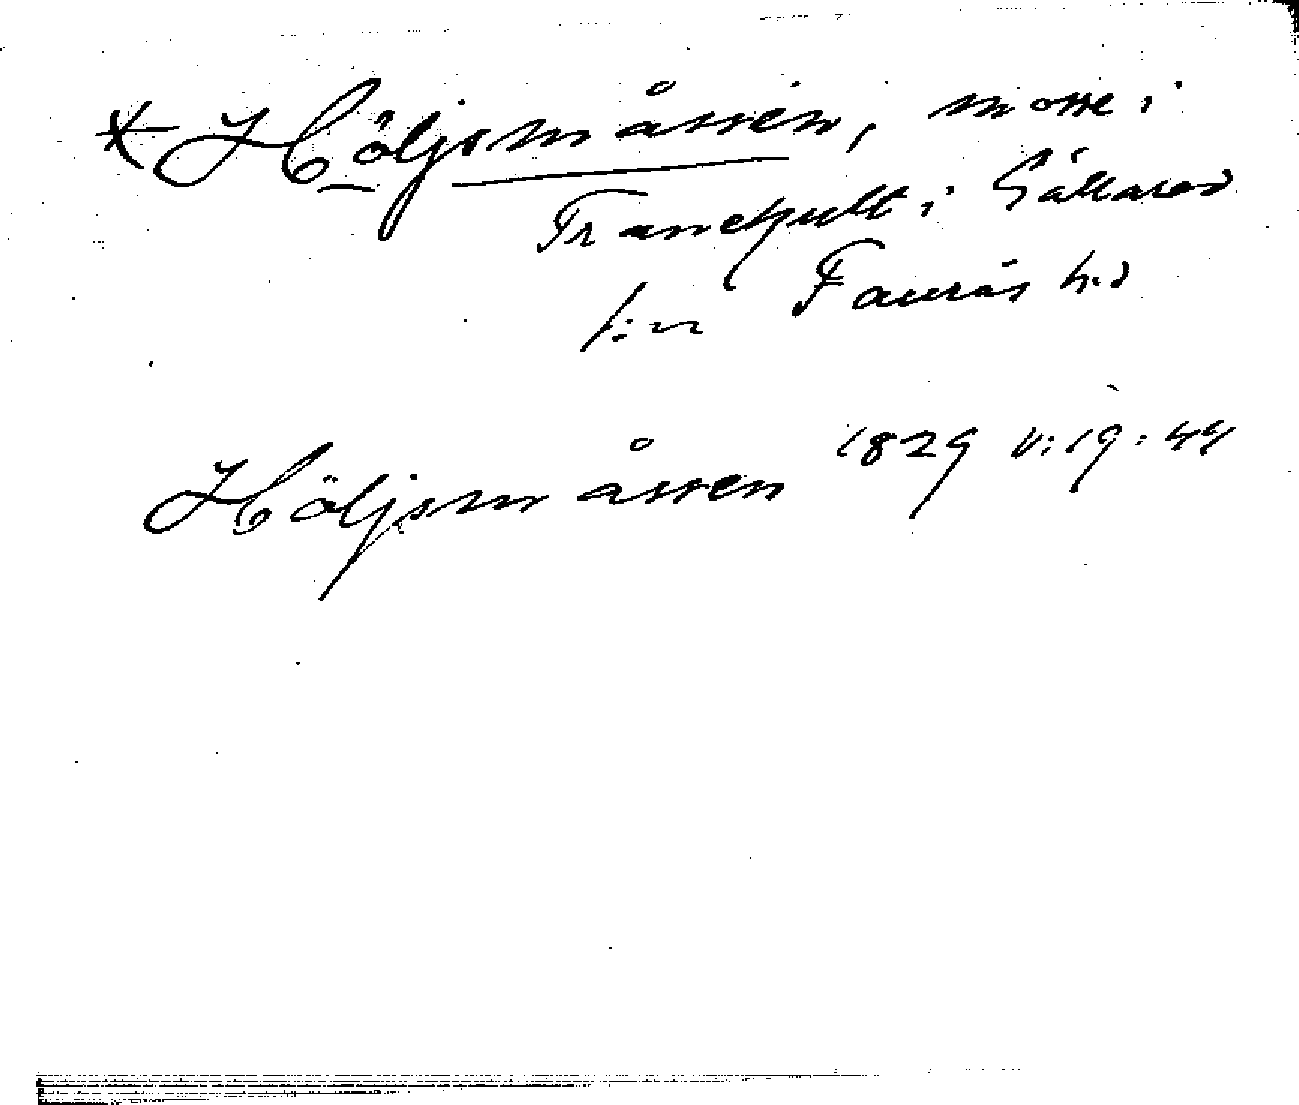 * Höljsmåssen, mosse i
Tranekulla i Gällared
s:n Faurås h:d
Höljsmåssen 1829 V:19:44